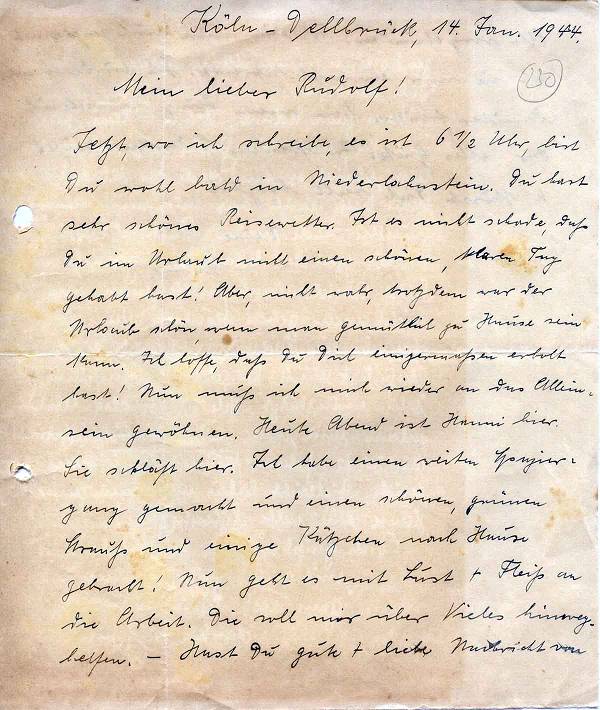 Köln - Dellbrück, 14. Jan. 1944.
230
Mein lieber Rudolf!
Jetzt, wo ich schreibe, es ist 6 1/2 Uhr, bist
Du wohl bald in Niederlahnstein. Du hast
sehr schönes Reisewetter. Ist es nicht schade, daß
Du im Urlaub nicht einen schönen, klaren Tag
gehabt hast! Aber, nicht wahr, trotzdem war der
Urlaub schön, wenn man gemütlich zu Hause sein
kann. Ich hoffe, daß Du Dich einigermassen erholt
hast! Nun muß ich mich wieder an das Allein-
sein gewöhnen. Heute Abend ist Hanni hier.
Sie schläft hier. Ich habe einen weiten Spazier-
gang gemacht und einen schönen, grünen
Strauß und einige Kätzchen nach Hause
gebracht! Nun geht es mit Lust + Fleiß an
die Arbeit. Die soll mir über Vieles hinweg-
helfen. — Hast Du gute + liebe Nachricht von